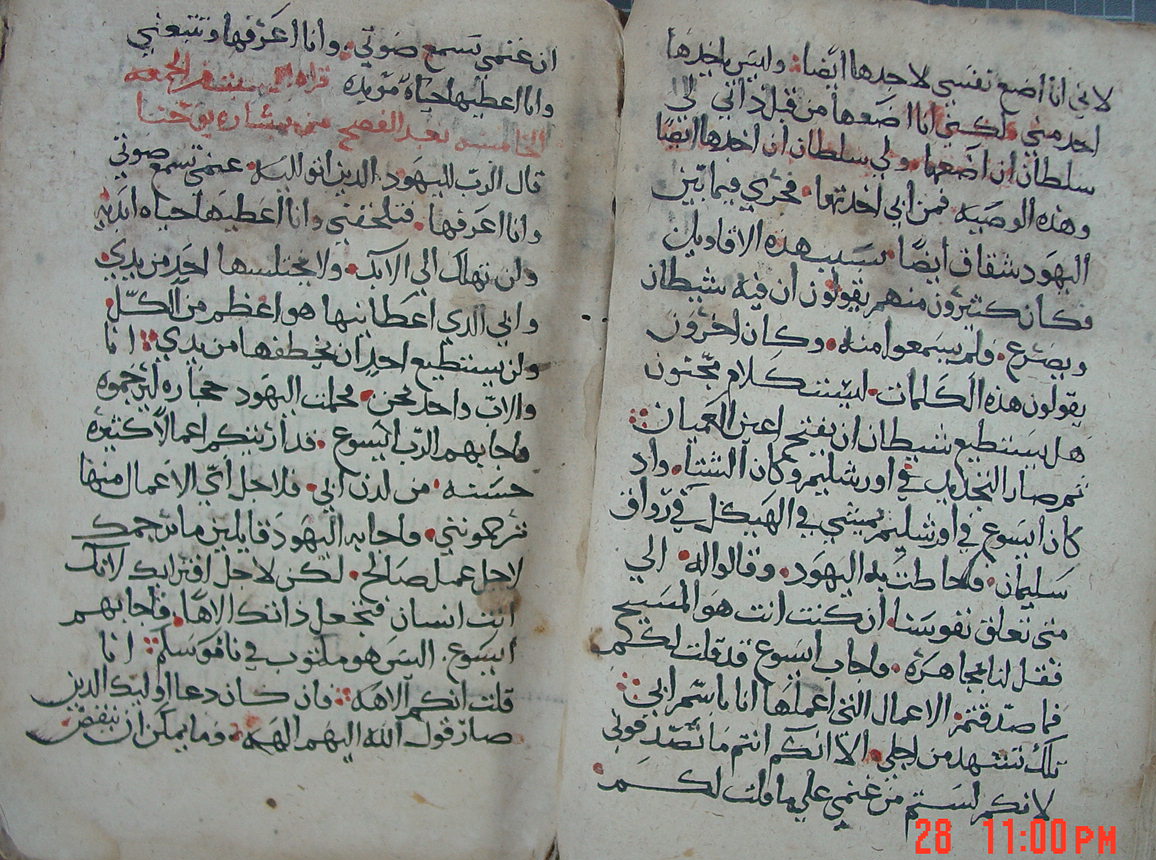 لاني انا اضع نفسي لاخدها ايضا وليس ياخدها
احد مني لكني انا اضعها من قبل داتي لي
سلطان ان اضعها ولي سلطان ان اخدها ايضا
وهذه الوصيه فمن ابي اخدتها فجري فيما بين
اليهود شقاق ايضا بسبب هده الاقاويل
فكان كتيرون منهم يقولون ان فيه شيطان
ويصرع فلم يسمعوا منه وكان اخرون
يقولون هذه الكلمات ليست كلام مجنون
هل يستطيع شيطان ان يفتح اعين العميان
تم صار التجديد في اورشليم وكان الشتا واد
كان ايسوع في اورشليم يمشي في الهيكل في رواق
سليمان فاحاطت به اليهود وقالوا له الي
متى تعلق نفوسنا ان كنت انت هو المسيح
فقل لنا مجاهرة واجاب ايسوع قد قلت لكم
فما صدقتم الاعمال التي اعملها انا باسم ابي
تلك تشهد من اجلي الا انكم انتم ما تصدقوني
لانكم لستم من غنمي على ما قلت لكم
ان غنمي تسمع صوتي وانا اعرفها وتتبعني
وانا اعطيها حياة مؤبده الجمعه
الخامسه بعد الفصح من بشاره يوحنا
قال الرب لليهود الذين اتو اليه غنمي تسمع صوتي
وانا اعرفها فتلحقني وانا اعطيها حياه ابديه
ولن تهلك الي الابد ولا يختلسها احد من يدي
وابي الدي اعطانيها هو اعظم من الكل
ولن يستطيع احد ان يخطفها من يدي انا
والاب واحد نحن فحملت اليهود حجاره ليرجموه
فاجابهم الرب ايسوع قد اريتكم اعمالا كتيرة
حسنه من لدن ابي فلاجل اي الاعمال منها
ترجمونني فاجابه اليهود قايلين ما نرجمك
لاجل عمل صالح لكن لاجل افترايك لانك
انت انسان فتجعل داتك الاها فاجابهم
ايسوع اليس هو مكتوب في ناموسكم انا
قلت انكم الاهه فان كان دعا اوليك الدين
صار قول الله اليهم الهه وما يمكن ان ينقض
28 11:00 PM